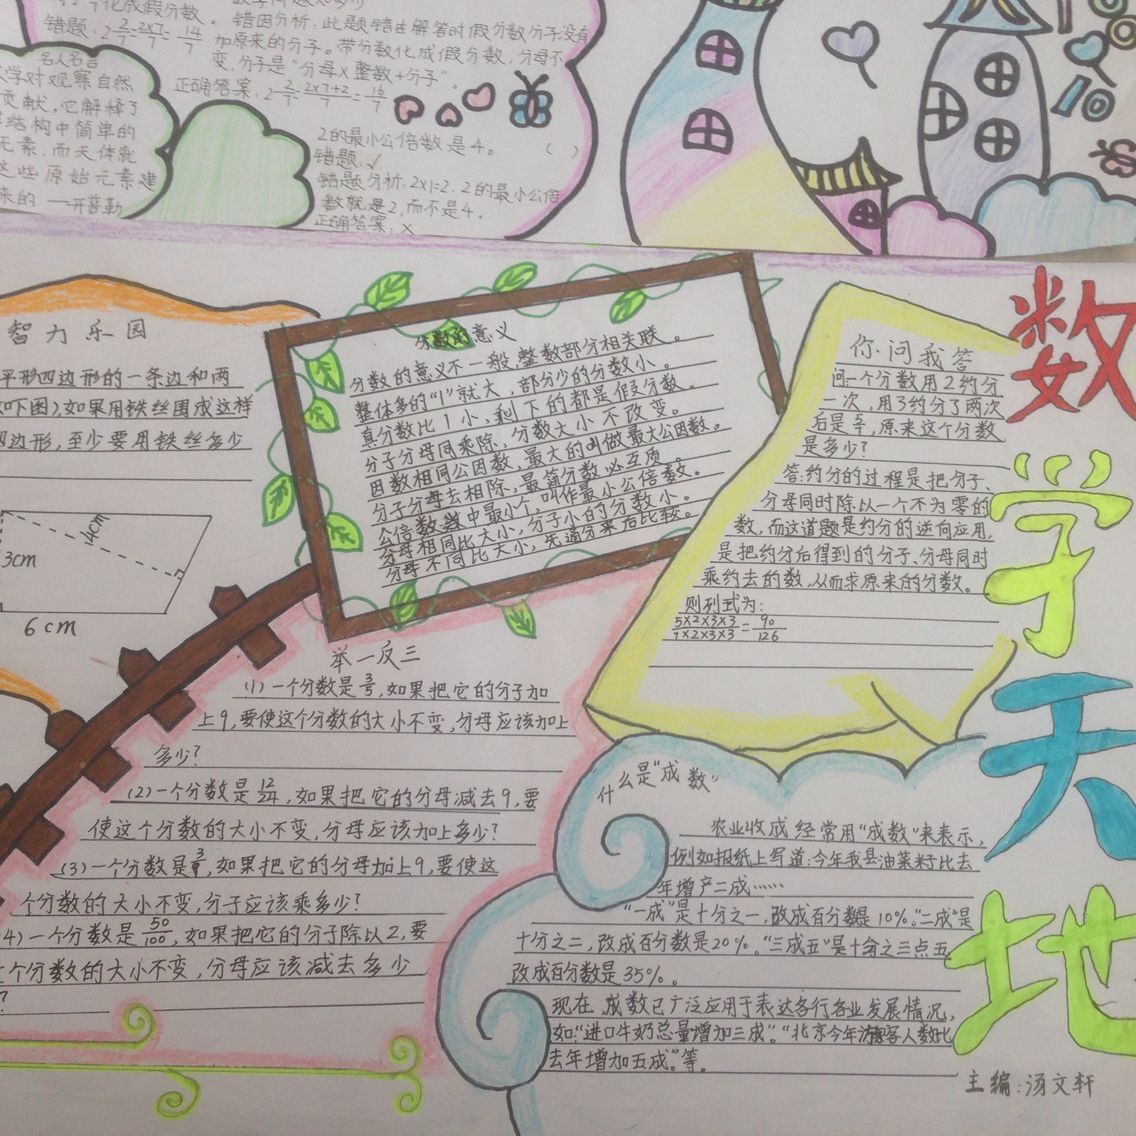 化成假分数。
错题:2 2/7=2×7/7=14/7
名人名言
学对观察自然
贡献,它解释了
结构中简单的
元素,而天体就
这些原始元素建
来的 —开普勒
错因分析:此题错在解答时假分数分子没有
加原来的分子。带分数化成假分数,分母不
变,分子是“分母×整数+分子”。
正确答案:2 2/7=2×7+2/7=16/7
2的最小公倍数是4。 ( )
错题:√
错题分析:2×1=2,2的最小公倍
数就是2,而不是4。
正确答案:×
智力乐园
平形四边形的一条边和两
如下图),如果用铁丝围成这样
四边形,至少要用铁丝多少
14cm
3cm
6cm
分数的意义
分数的意义不一般,整数部分相关联。
整体多的“1”就大,部分少的分数小。
真分数比1小,剩下的都是假分数。
分子分母同乘除,分数大小不改变。
因数相同公因数,最大的叫做最大公因数。
分子分母去相除,最简分数必互质。
公倍数中最小个,叫作最小公倍数。
分母相同比大小,分子小的分数小。
分母不同比大小,先通分来后比较。
你问我答
问一个分数用2约分
一次,用3约分了两次
后是5/7,原来这个分数
是多少?
答:约分的过程是把分子、
分母同时除以一个不为零的
数,而这道题是约分的逆向应用,
是把约分后得到的分子、分母同时
乘约去的数,从而求原来的分数。
则列式为:
5×2×3×3/7×2×3×3=90/126
举一反三
(1)一个分数是3/5,如果把它的分子加
上9,要使这个分数的大小不变,分母应该加上
多少?
(2)一个分数是12/24,如果把它的分母减去9,要
使这个分数的大小不变,分母应该加上多少?
(3)一个分数是,如果把它的分母加上9,要使这
个分数的大小不变,分子应该乘多少?
4)一个分数是50/100,如果把它的分子除以2,要
个分数的大小不变,分母应该减去多少
?
什么是“成数”
农业收成,经常用“成数”来表示,
例如报纸上写道:今年我县油菜籽比去
年增产二成……
“一成”是十分之一,改成百分数是10%。“二成”是
十分之二,改成百分数是20%。“三成五”是十分之三点五,
改成百分数是35%。
现在,成数已广泛应用于表达各行各业发展情况,
如:“进口牛奶总量增加三成”。“北京今年游客人数比
去年增加五成”。等。
数学天地
主编:汤文轩